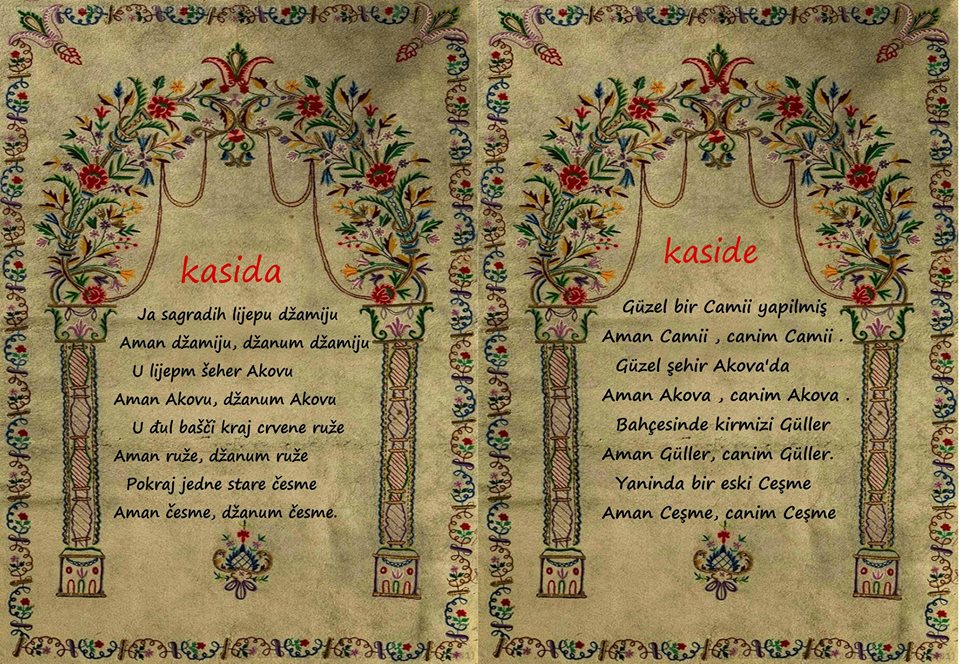 kasida
Ja sagradih lijepu džamiju
Aman džamiju, džanum džamiju
U lijepm šeher Akovu
Aman Akovu, džanum Akovu
U đul bašči kraj crvene ruže
Aman ruže, džanum ruže
Pokraj jedne stare česme
Aman česme, džanum česme.
kaside
Güzel bir Camii yapilmiş
Aman Camii , canim Camii .
Güzel şehir Akova'da
Aman Akova , canim Akova .
Bahçesinde kirmizi Güller
Aman Güller, canim Güller.
Yaninda bir eski Ceşme
Aman Ceşme, canim Ceşme